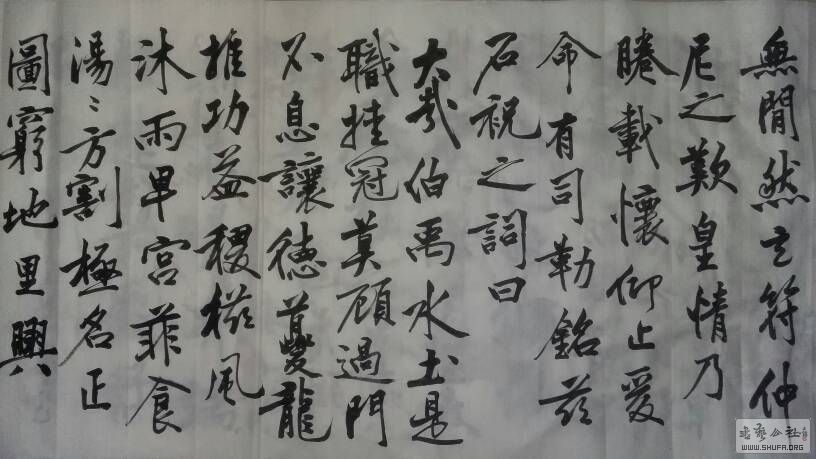 無閒然之符仲
尼之歎皇情乃
睠載懷仰止爰
命有司勒銘茲
石祝之詞曰
大哉伯禹水土是
職挂冠莫顧過門
不息讓德夔龍
推功益稷櫛風
沐雨卑宮菲食
湯〻方割極名正
圖窮地里興
書藝公社
WWW.SHUFA.ORG